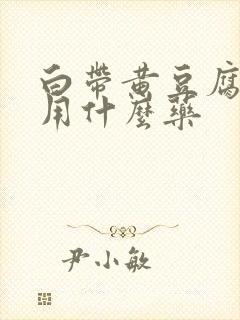 白带黄豆腐
用什麼药
尹小敏